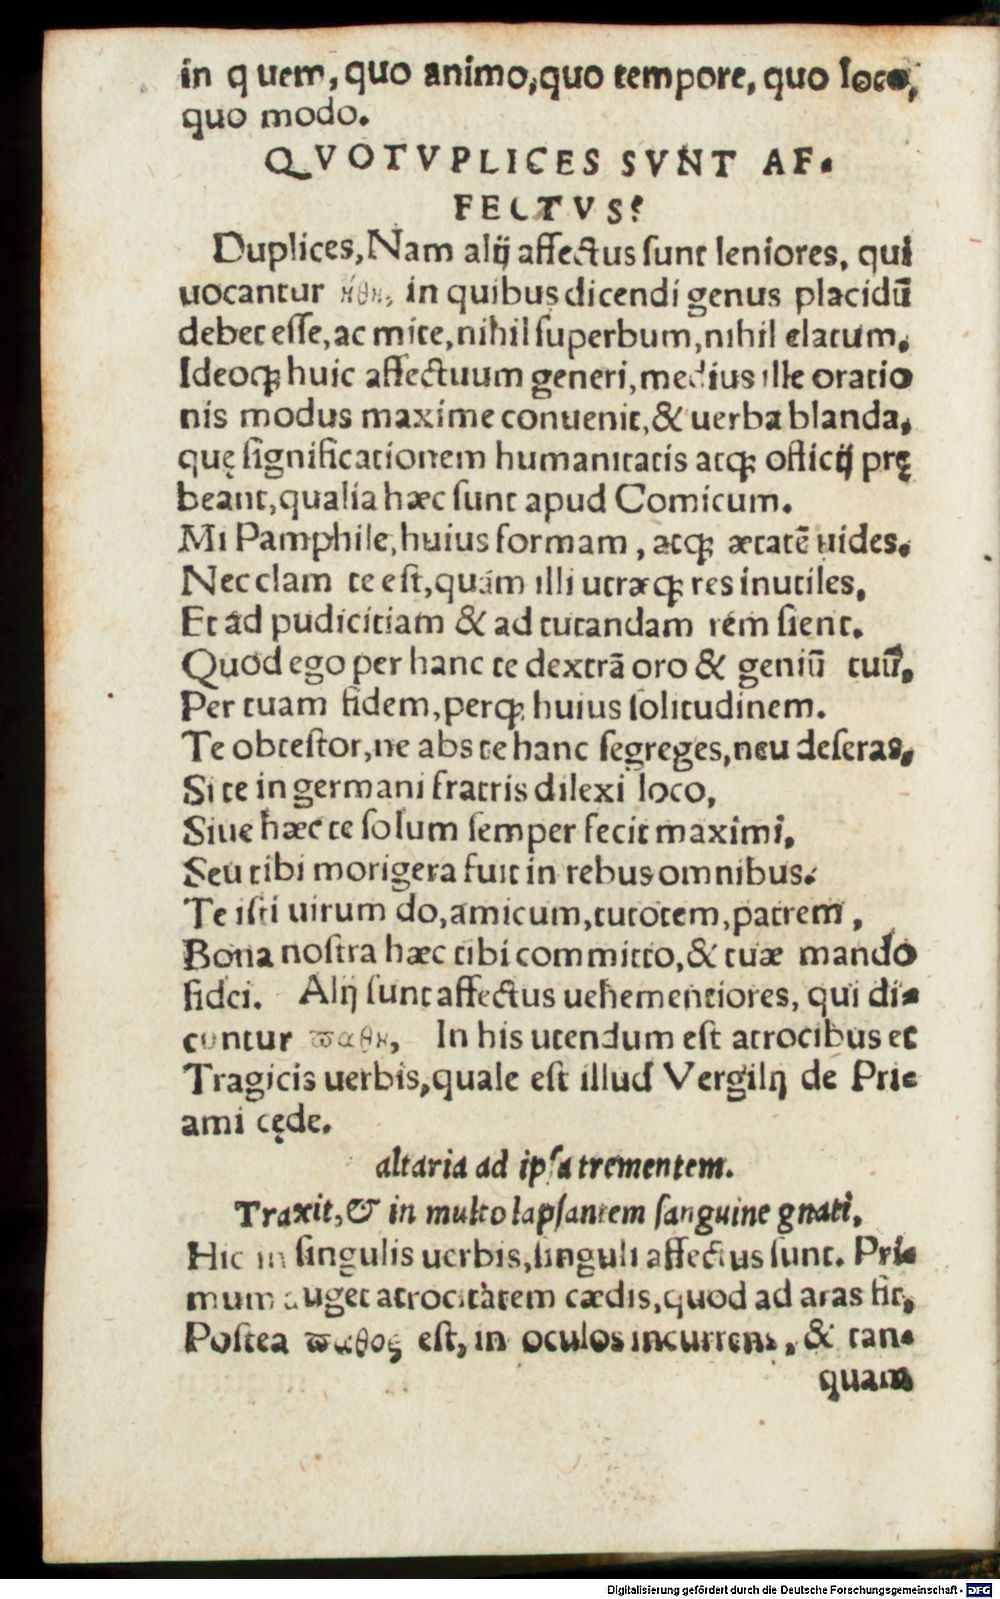 in q uem, quo animo, quo tempore, quo loco,
quo modo.
QVOTVPLICES SVNT AF-
FECTVS?
Duplices, Nam alij affectus sunt leniores, qui
uocantur ἤθη, in quibus dicendi genus placidū
debet esse, ac mite, nihil superbum, nihil elatum.
Ideoq; huic affectuum generi, medius ille oratio
nis modus maxime conuenit, & uerba blanda,
quę significationem humanitatis atq; officij prę
beant, qualia hæc sunt apud Comicum.
Mi Pamphile, huius formam, atq; ætatē uides.
Nec clam te est, quám illi utræq; res inutiles,
Et ad pudicitiam & ad tutandam rem sient.
Quod ego per hanc te dextrā oro & geniū tuū,
Per tuam fidem, perq; huius solitudinem.
Te obtestor, ne abs te hanc segreges, neu deseras,
Si te in germani fratris dilexi loco,
Siue hæc te solum semper fecit maximi,
Seu tibi morigera fuit in rebus omnibus.
Te isti uirum do, amicum, tutorem, patrem,
Bona nostra hæc tibi committo, & tuæ mando
fidei. Alij sunt affectus uehementiores, qui di-
cuntur παθη, In his utendum est atrocibus et
Tragicis uerbis, quale est illud Vergilij de Pri-
ami cęde.
altaria ad ipsa trementem.
Traxit, & in multo lapsantem sanguine gnati,
Hic in singulis uerbis, singuli affectus sunt. Pri-
mum auget atrocitàtem cædis, quod ad aras fit,
Postea παθος est, in oculos incurrens, & tan-
quam
Digitalisierung gefördert durch die Deutsche Forschungsgemeinschaft - DFG